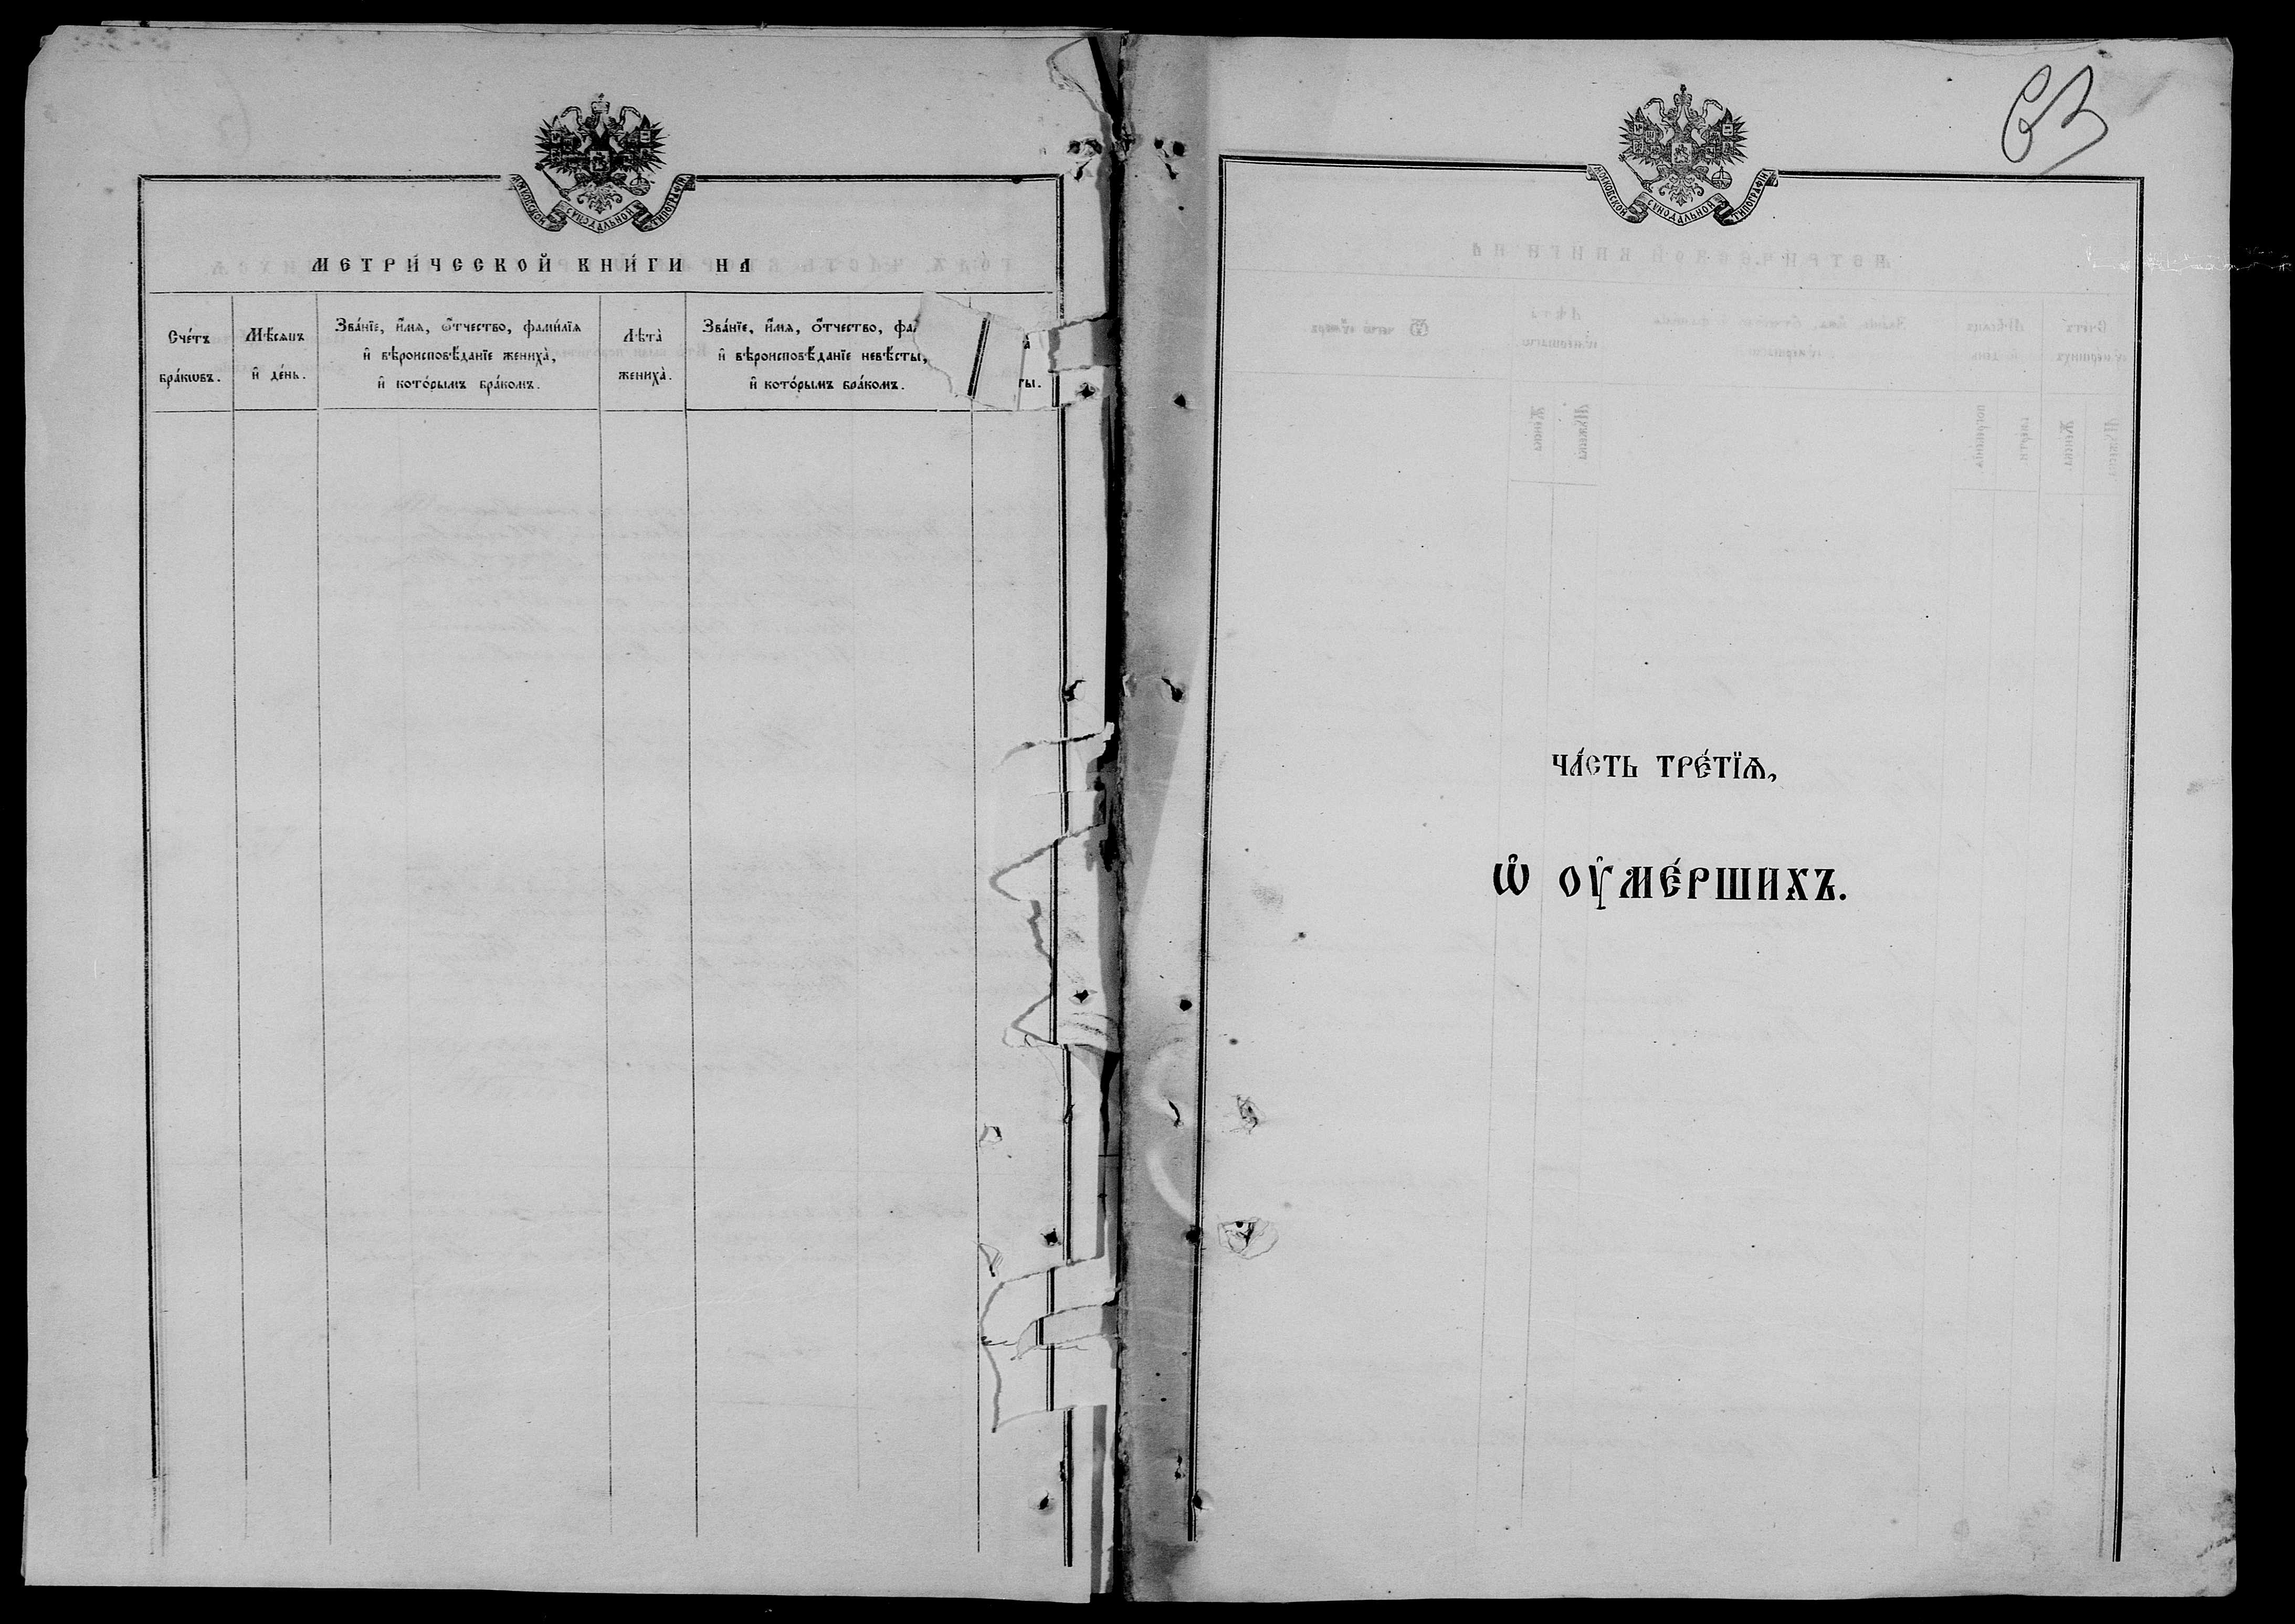 МОСКОВСКОЙ СѴНОДАЛЬНОЙ ТИПОГРАФІИ
МЕТРИ́ЧЕСКОЙ КНИ́ГИ НА
Сче́тъ
бра́кѡвъ.
Мѣ́сѧцъ
и҆ де́нь.
Зва́нїе, и҆́мѧ, ѻ҆́тчество, фами́лїѧ
и҆ вѣроисповѣ́данїе жениха̀,
и҆ кото́рымъ бра́комъ.
Лѣ́та̀
жениха̀.
Зва́нїе, и҆́мѧ, ѻ҆́тчество,
и҆ вѣроисповѣ́данїе невѣ́сты,
и҆ кото́рымъ бра́комъ.
МОСКОВСКОЙ СѴНОДАЛЬНОЙ ТИПОГРАФІИ
63
ЧА́СТЬ ТРЕ́ТЇѦ,
Ѡ҆ ОУ҆МЕ́РШИХЪ.